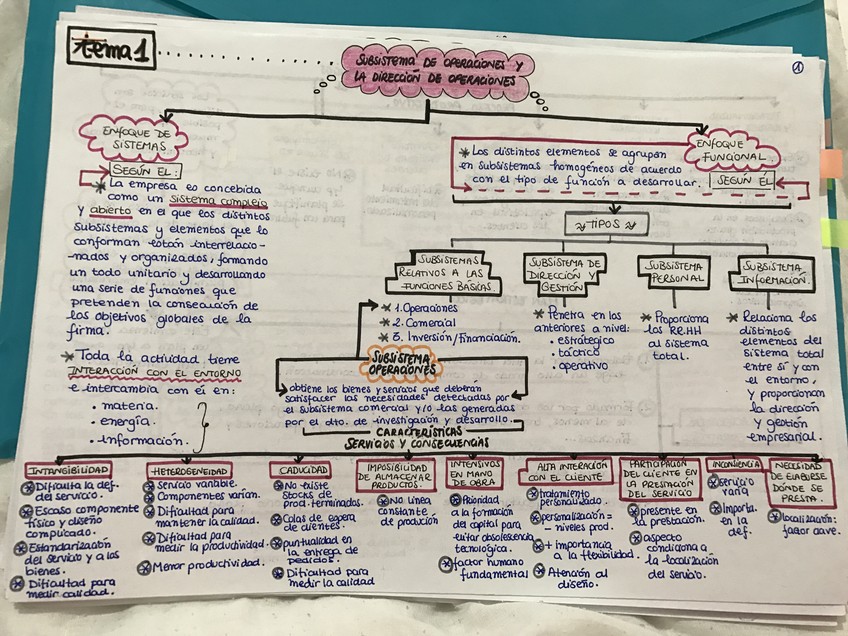 tema 1
SUBSISTEMA DE OPERACIONES Y
LA DIRECCIÓN DE OPERACIONES
1
ENFOQUE DE
SISTEMAS
SEGÚN EL:
* La empresa es concebida
como un sistema complejo
y abierto en el que los distintos
subsistemas y elementos que lo
conforman están interrelacio-
nados y organizados, formando
un todo unitario y desarrollando
una serie de funciones que
pretenden la consecución de
los objetivos globales de la
firma.
* Toda la actividad tiene
INTERACCIÓN CON EL ENTORNO
e intercambia con él en:
• materia.
• energía.
• Información.
ENFOQUE
FUNCIONAL
SEGÚN ÉL
* Los distintos elementos se agrupan
en subsistemas homogéneos de acuerdo
con el tipo de función a desarrollar.
TIPOS
SUBSISTEMAS
RELATIVOS A LAS
FUNCIONES BÁSICAS.
* 1. Operaciones
* 2. Comercial
* 3. Inversión/Financiación.
SUBSISTEMA DE
DIRECCIÓN Y
GESTIÓN
* Penetra en los
anteriores a nivel:
• estratégico
• táctico
• operativo
SUBSISTEMA
PERSONAL
* Proporciona
los RR.HH
al sistema
total.
SUBSISTEMA
INFORMACIÓN.
* Relaciona los
distintos
elementos del
sistema total
entre sí y con
el entorno,
y proporcionan
la dirección
y gestión
empresarial.
SUBSISTEMA
OPERACIONES
obtiene los bienes y servicios que deberán
satisfacer las necesidades detectadas por
el subsistema comercial y/o las generadas
por el dto. de investigación y desarrollo.
CARACTERÍSTICAS
SERVICIOS Y CONSECUENCIAS
INTANGIBILIDAD
* Dificulta la def.
del servicio.
* Escaso componente
físico y diseño
complicado.
* Estandarización
del servicio y a los
bienes.
* Dificultad para
medir calidad.
HETEROGENEIDAD
* Servicio variable.
* Componentes varían.
* Dificultad para
mantener la calidad.
* Dificultad para
medir la productividad.
* Menor productividad.
CADUCIDAD
* No existe
stocks de
prod. terminados.
* Colas de espera
de clientes.
* puntualidad en
la entrega de
pedidos.
* Dificultad para
medir la calidad
IMPOSIBILIDAD
DE ALMACENAR
PRODUCTOS.
* No línea
constante
de produción
INTENSIVOS
EN MANO
DE OBRA
* Prioridad
a la formación
del capital para
evitar obsolescencia
tecnológica.
* factor humano
fundamental
ALTA INTERACIÓN
CON EL CLIENTE
* tratamiento
personalizado.
* personalización =
- niveles prod.
* + importancia
a la flexibilidad.
* Atención al
diseño.
PARTICIPACIÓN
DEL CLIENTE EN
LA PRESTACIÓN DEL
SERVICIO
* presente en
la prestación.
* aspecto
condiciona a
la localización
del servicio.
* Servicio
varía
* Importa.
en la
def.
NECESIDAD
DE ELABIRSE
DÓNDE SE
PRESTA.
* localización:
factor clave.